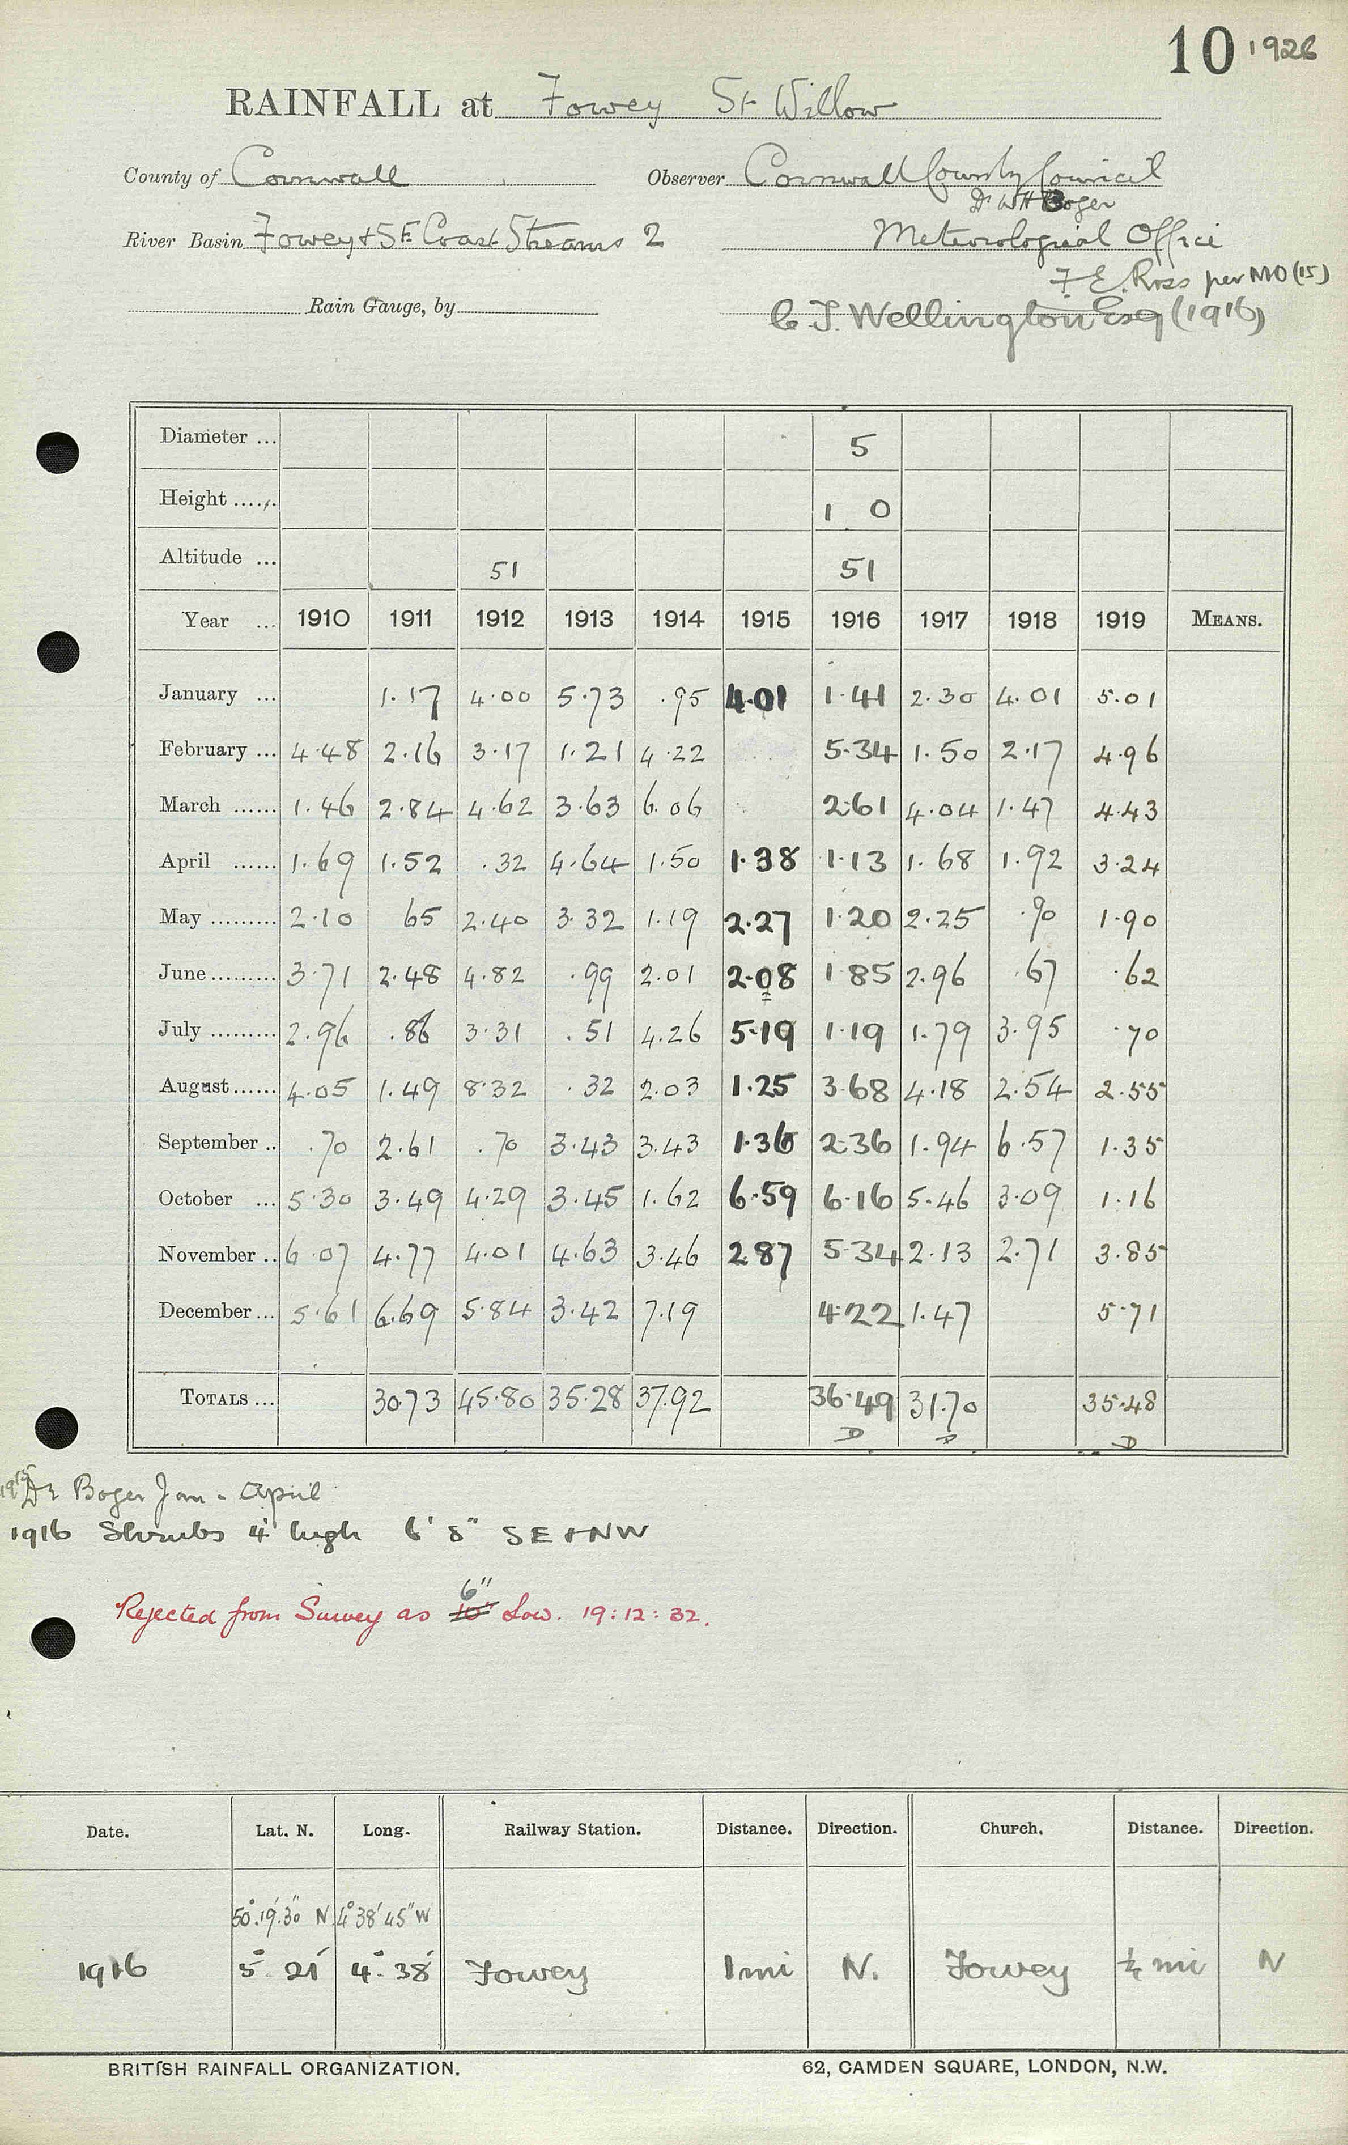 10 1926
RAINFALL at Fowey St Willow
County of Cornwall Observer Cornwall County Council
Dr WH Boger
River Basin Fowey & S.E. Coast Streams 2 Meteorological Office
F. E. Ross per MO (15)
Rain Gauge, by
C T. Wellington Esq (1916)
Diameter ... 5
Height ...... 1 0
Altitude ... 51 51
Year ... 1910 1911 1912 1913 1914 1915 1916 1917 1918 1919 MEANS.
January ... 1.17 4.00 5.73 .95 4.01 1.41 2.30 4.01 5.01
February ... 4.48 2.16 3.17 1.21 4.22 5.34 1.50 2.17 4.96
March ...... 1.46 2.84 4.62 3.63 6.06 2.61 4.04 1.47 4.43
April ...... 1.69 1.52 .32 4.64 1.50 1.38 1.13 1.68 1.92 3.24
May ......... 2.10 65 2.40 3.32 1.19 2.27 1.20 2.25 .90 1.90
June ......... 3.71 2.48 4.82 .99 2.01 2.08 1.85 2.96 .67 .62
July ......... 2.96 .86 3.31 .51 4.26 5.19 1.19 1.79 3.95 .70
August ...... 4.05 1.49 8.32 .32 2.03 1.25 3.68 4.18 2.54 2.55
September .. .70 2.61 .70 3.43 3.43 1.36 2.36 1.94 6.57 1.35
October ... 5.30 3.49 4.29 3.45 1.62 6.59 6.16 5.46 3.09 1.16
November .. 6.07 4.77 4.01 4.63 3.46 2.87 5.34 2.13 2.71 3.85
December ... 5.61 6.69 5.84 3.42 7.19 4.22 1.47 5.71
TOTALS ... 30.73 45.80 35.28 37.92 36.49 31.70 35.48
D D D
1915 Dr Boger Jan - April
1916 Shrubs 4' high 6' 8" SE & NW
6"
Rejected from Survey as 10" Low. 19:12:32.
Date. Lat. N. Long. Railway Station. Distance. Direction. Church. Distance. Direction.
50°.19'.30" N 4°38'45" W
1916 5° 21' 4° 38' Fowey 1 mi N. Fowey ¼ mi N
BRITISH RAINFALL ORGANIZATION. 62, CAMDEN SQUARE, LONDON, N.W.